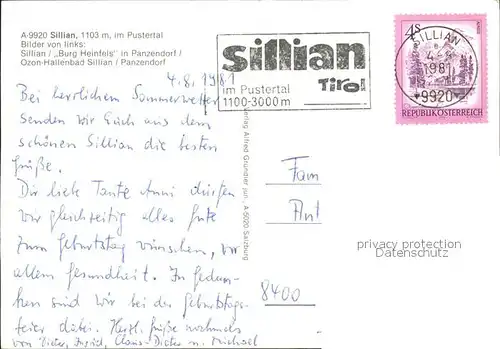 A-9920 Sillian, 1103 m, im Pustertal
Bilder von links:
Sillian / „Burg Heinfels" in Panzendorf /
Ozon-Hallenbad Sillian / Panzendorf
sillian
Tirol
im Pustertal
1100-3000 m
SILLIAN
1981
9920
4 S
REPUBLIK ÖSTERREICH
4.8.1981
Bei herrlichem Sommerwetter
senden wir Euch aus dem
schönen Sillian die besten
Grüße.
Dir liebe Tante Anni dürfen
wir gleichzeitig alles Gute
zum Geburtstag wünschen, vor
allem Gesundheit. In Gedan-
ken sind wir bei der Geburtstags-
feier dabei. Herzl. Grüße nochmals
von Dieter, Ingrid, Claus-Dieter u. Michael
Verlag Alfred Grundler jun., A-5020 Salzburg
Fam
8400
privacy protection
Datenschutz